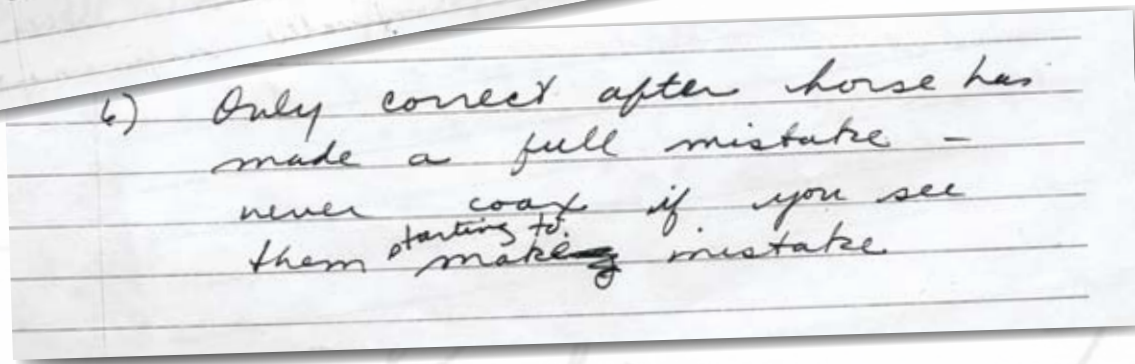 6) Only correct after horse has
made a full mistake –
never coax if you see
them starting to make mistake